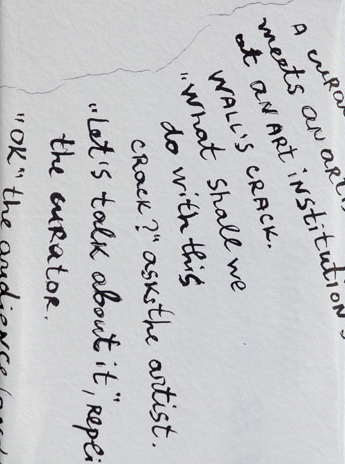 A
meets an
at an ART iNSTiTUTiON
WALL'S CRACK.
"What shall we
do with this
CRACK?" asks the artist.
"Let's talk about it",
the curator.
"OK" the audience